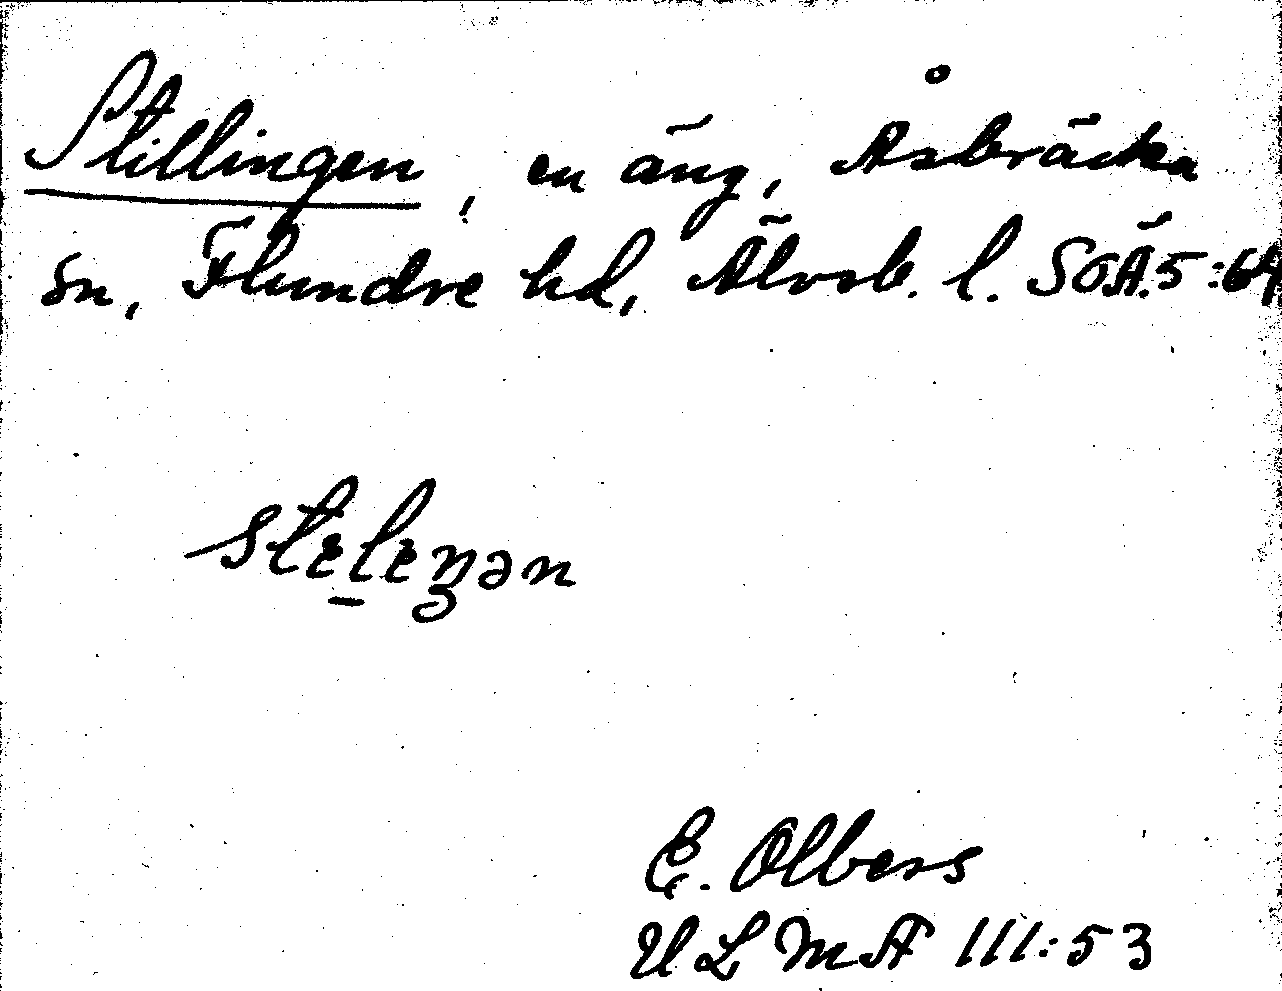 Stillingen, en äng, Åsbräcka
sn, Flundre hd, Älvsb. l. SOÄ.5:64
E. Olbers
ULMA 111:53